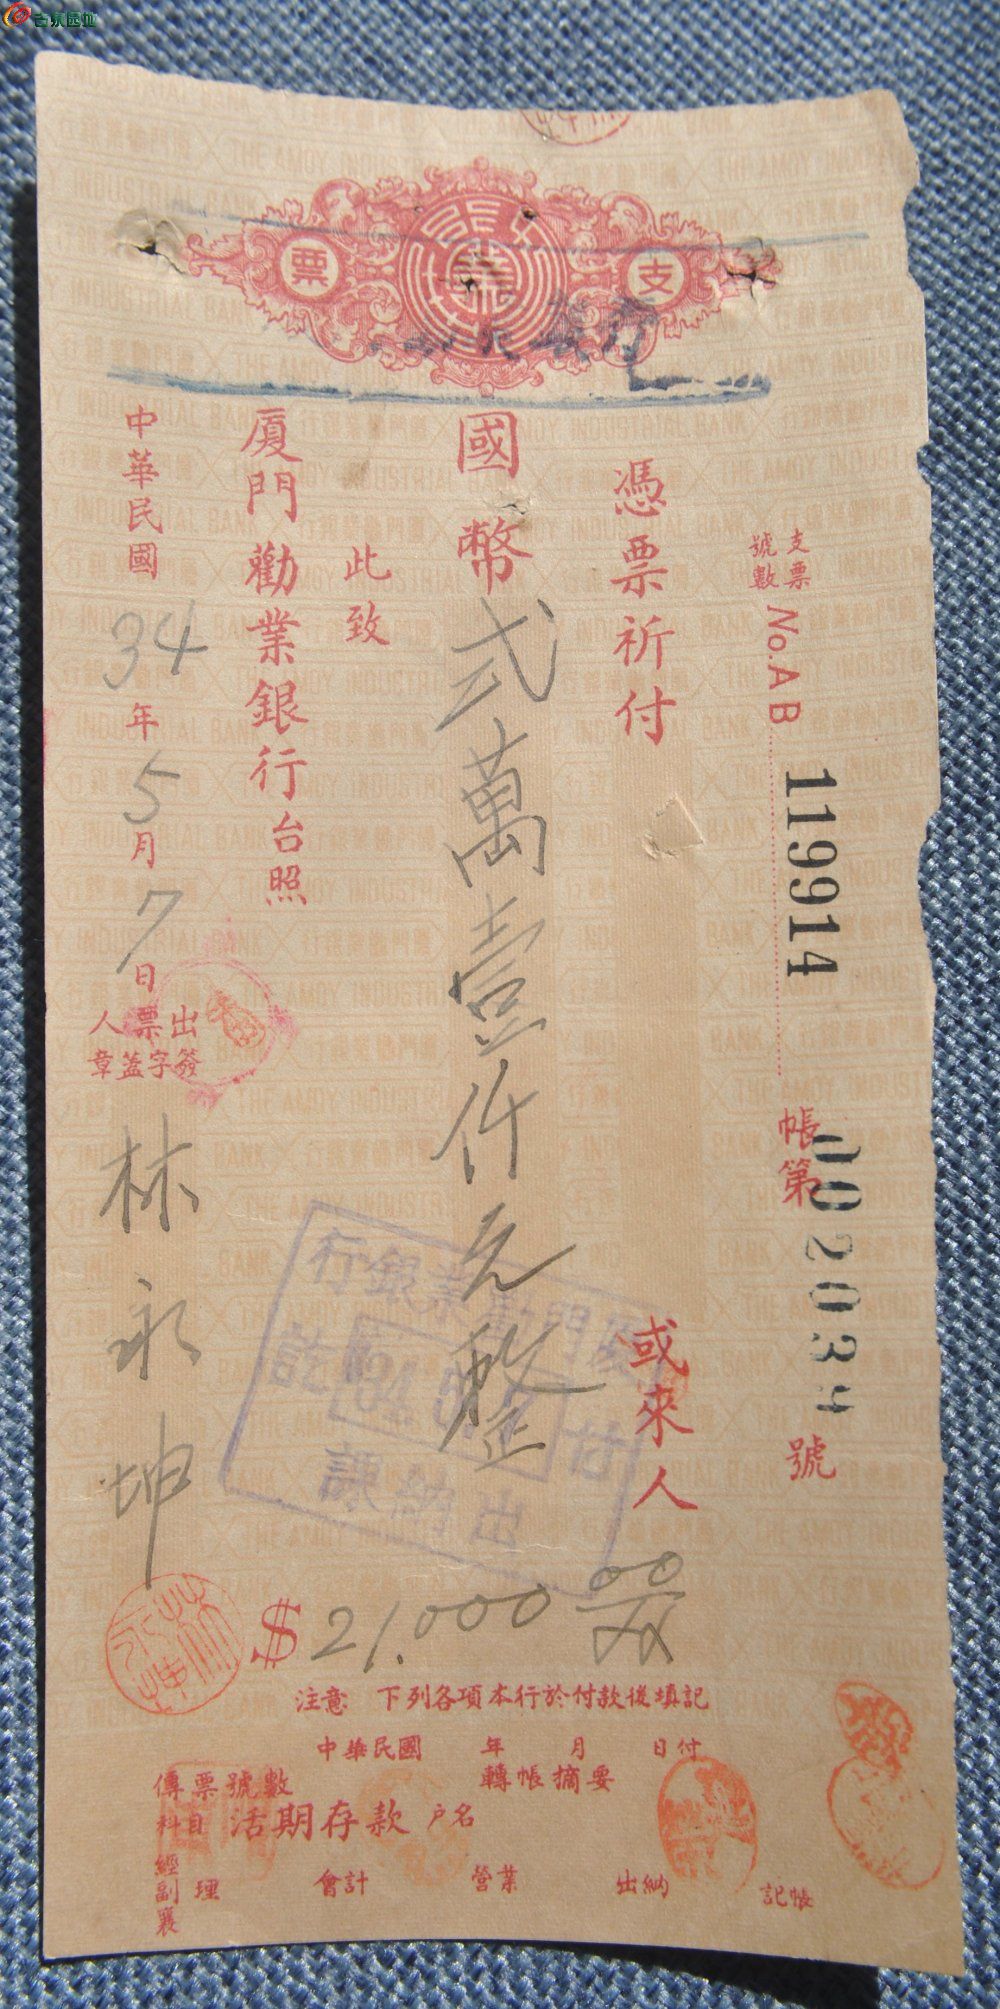 古泉园地
支票
支票號數 No. AB 119914
帳第 002034 號
憑票祈付 或來人
國幣 弍萬壹仟元整
此致
廈門勸業銀行台照
中華民國 34 年 5 月 7 日
出票人
簽字蓋章
林永坤
廈門勸業銀行
付 34.5.7 訖
出納課
$ 21.000 00/xx
注意 下列各項本行於付款後填記
中華民國 年 月 日付
傳票號數 轉帳摘要
科目 活期存款 戶名
經副襄理 會計 營業 出納 記帳
THE AMOY INDUSTRIAL BANK
廈門勸業銀行